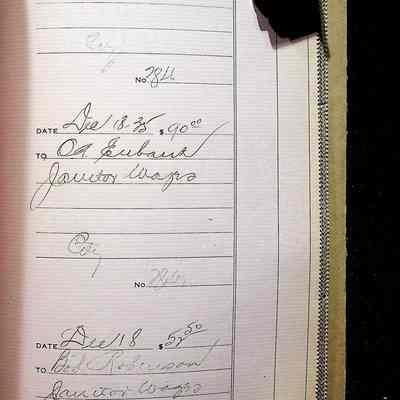 No. 284
DATE Dec 18-35 $ 90 00
TO OA Eubank
Janitor Wages
No.
DATE Dec 18 $ 52 50
TO Bob Roberson
Janitor Wages